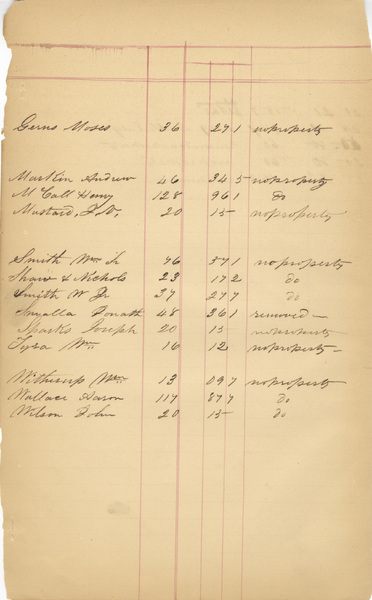 Gerus Moses 36 27 1 noproperty
Martlin Andrew 46 34 5 noproperty
M Call Henry 128 96 1 do
Mustard, J. D. 20 15 noproperty
Smith Wm Sr 76 57 1 noproperty
Shaw & Nichols 23 17 2 do
Smith W Jr 37 27 7 do
Jonath 48 36 1 removed —
Sparks Joseph 20 15 noproperty
Wm 16 12 noproperty —
Witherup Wm 13 09 7 noproperty
Wallace Aaron 117 87 7 do
Wilson John 20 15 do